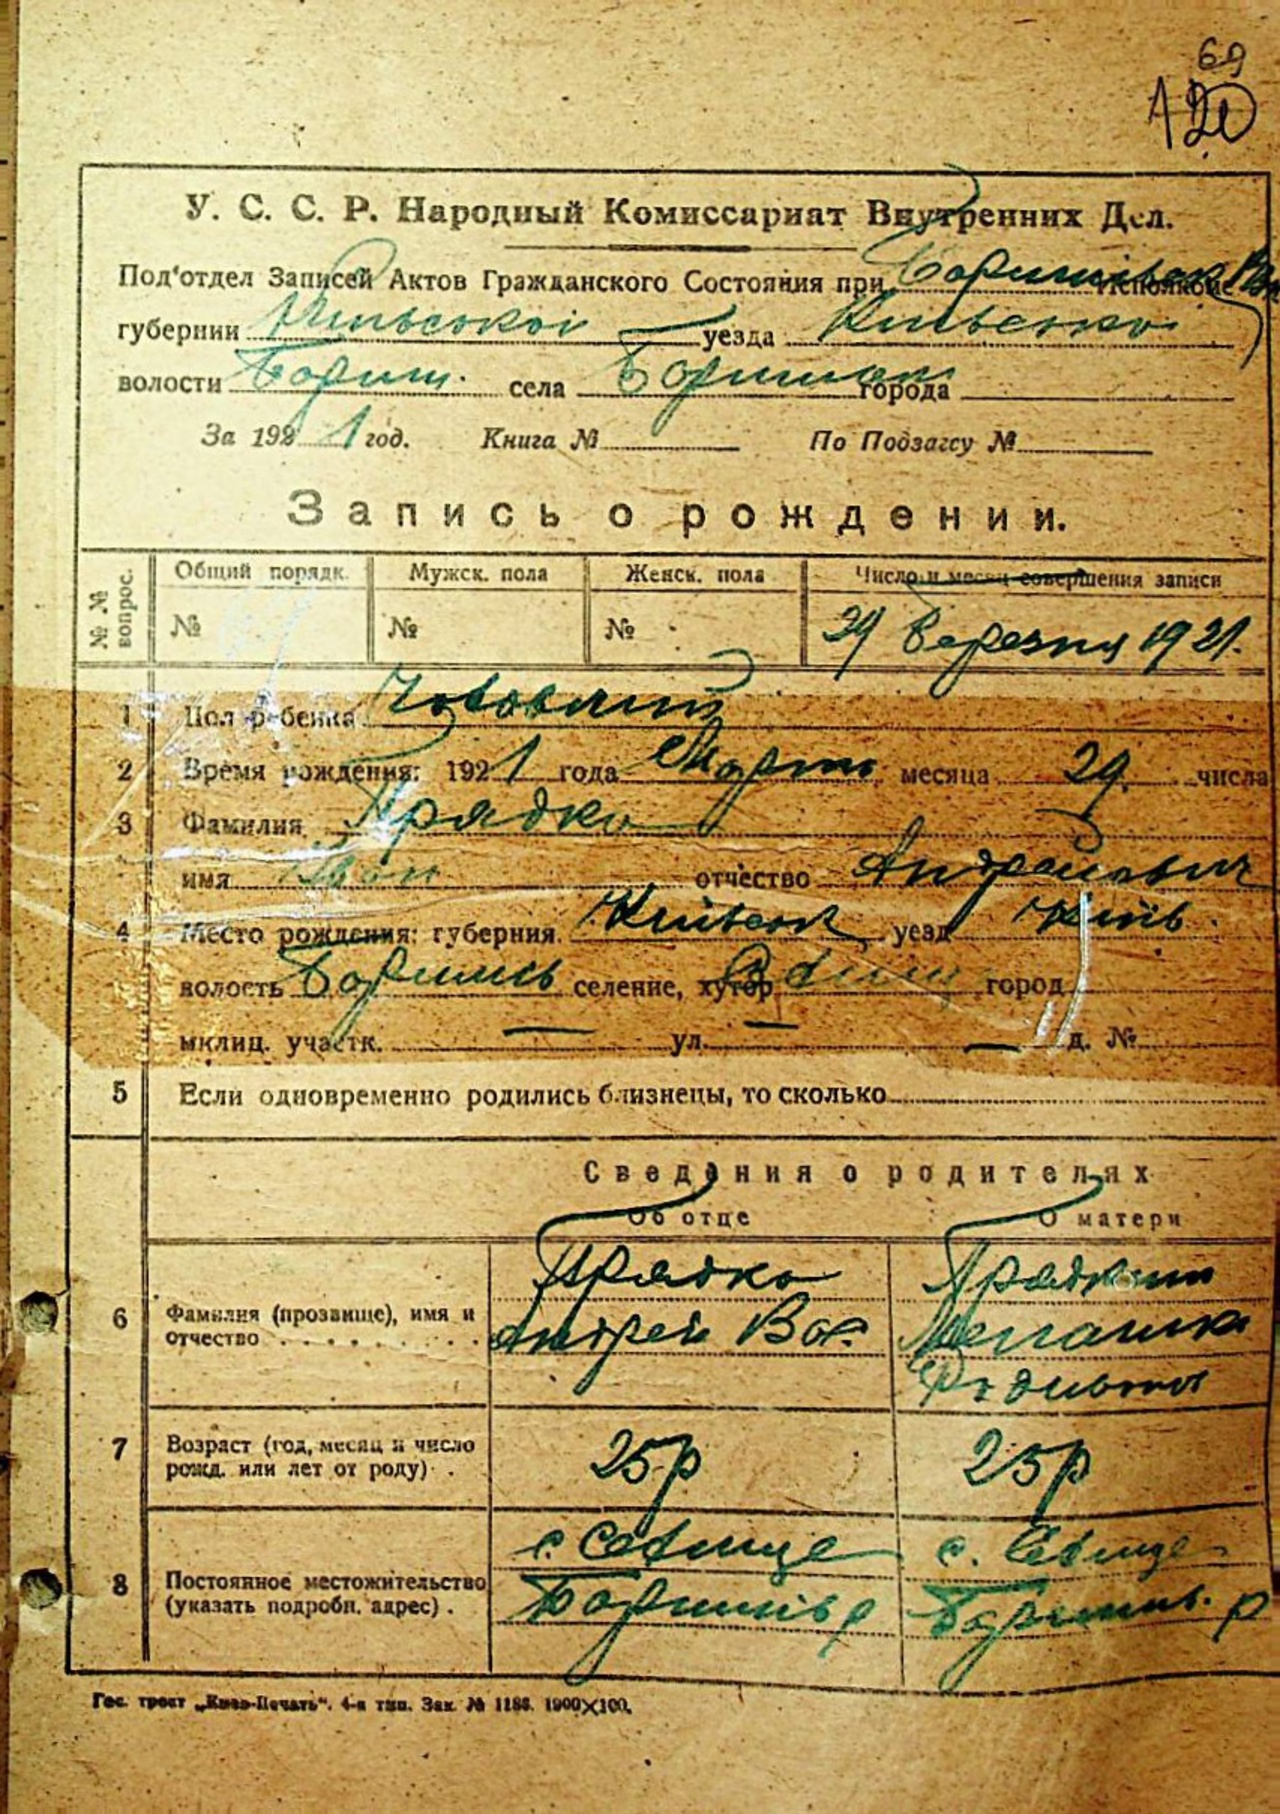 69
120
У. С. С. Р. Народный Комиссариат Внутренних Дел.
Под'отдел Записей Актов Гражданского Состояния при Исполкоме
губернии Київської уезда Київсько
волости Бориш. села города
За 1921 год. Книга № По Подзагсу №
Запись о рождении.
№ № вопрос. Общий порядк. Мужск. пола Женск. пола Число и месяц совершения записи
№ № № 29 березня 1921.
1 Пол ребенка Чоловічий
2 Время рождения: 1921 года Март месяца 29. числа
3 Фамилия Прядко
имя Іван отчество Андрейович
4 Место рождения: губерния. Київськ уезд Київ.
волость селение, хутор город
милиц. участк. — ул. — — д. №
5 Если одновременно родились близнецы, то сколько
Сведения о родителях
Об отце О матери
6 Фамилия (прозвище), имя и отчество Прядко Андрей Вас.
7 Возраст (год, месяц и число рожд. или лет от роду) 25 р 25 р
8 Постоянное местожительство (указать подробн. адрес) с. с.
Гос. трест „Киев-Печать". 4-я тип. Зак. № 1186. 1900×100.